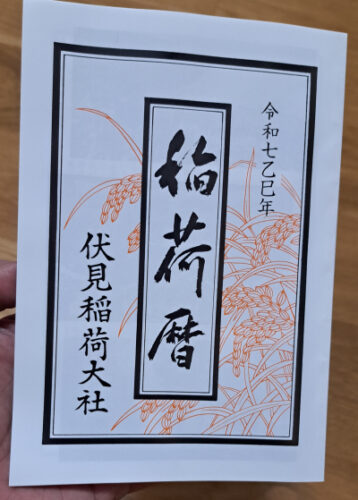 令和七乙巳年
稲荷暦
伏見稲荷大社